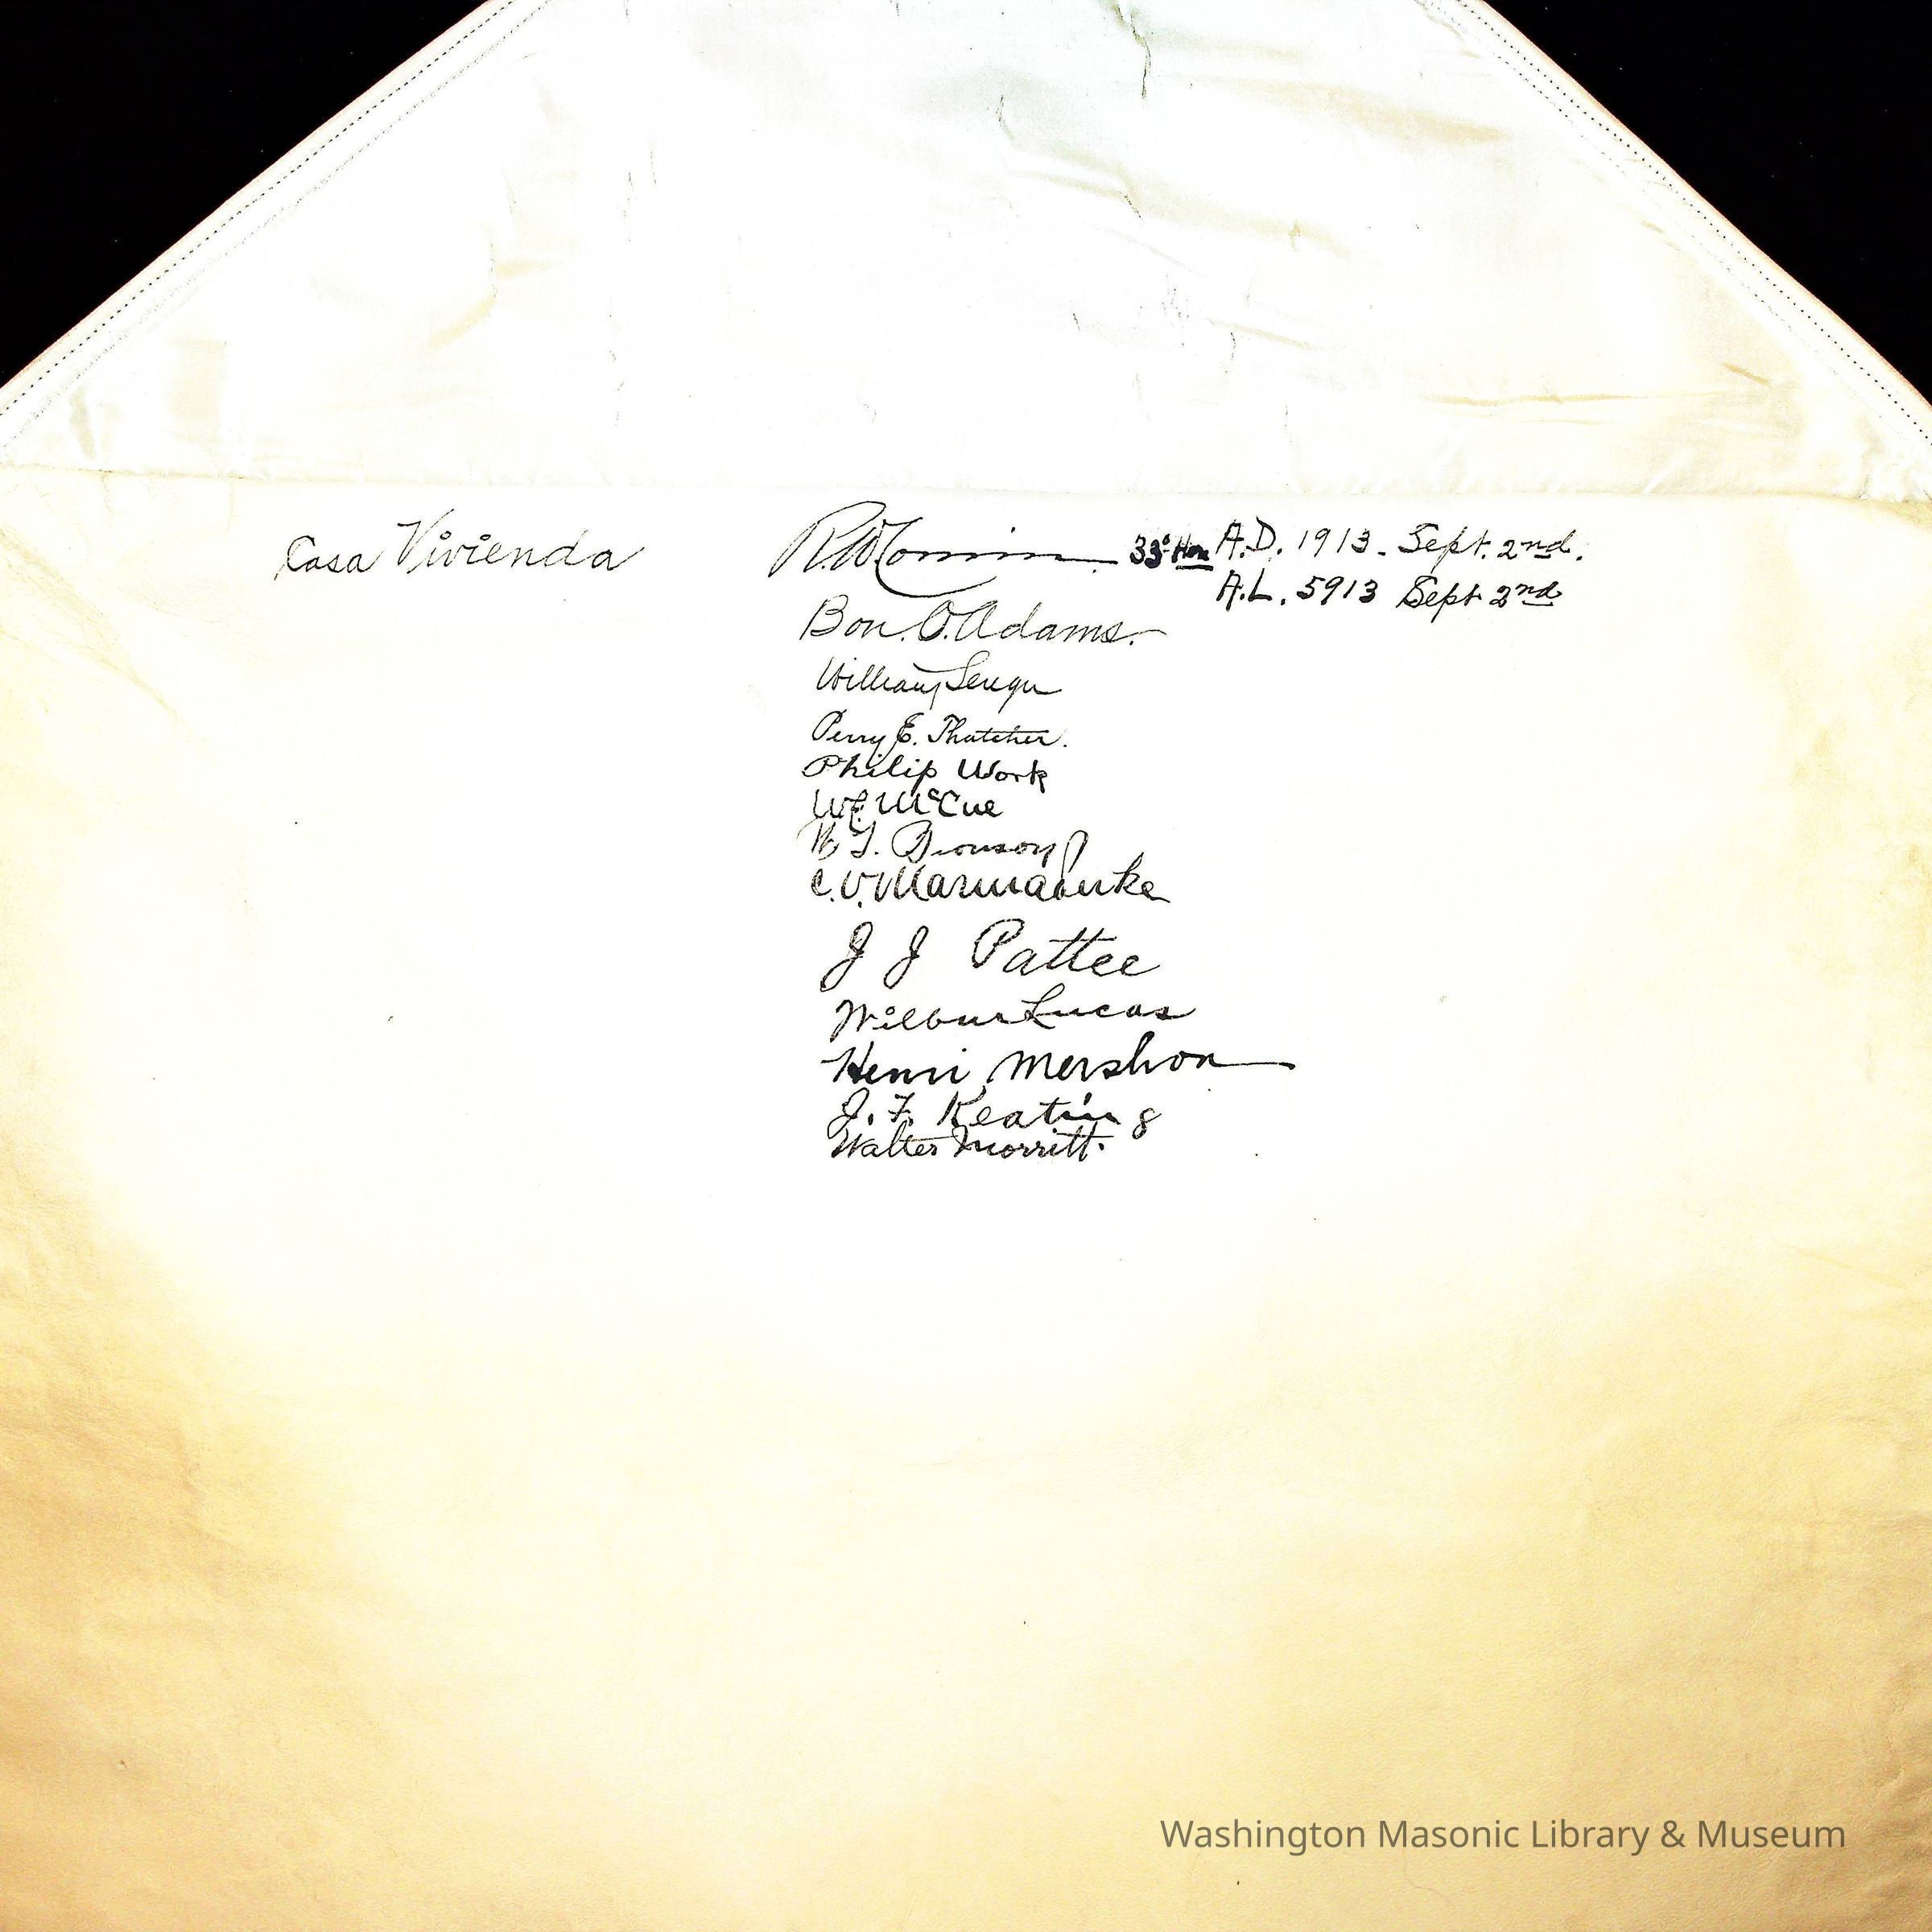 Casa Vivienda
33° Hon A.D. 1913. Sept. 2nd.
A.L. 5913 Sept 2nd
Bon. O. Adams.
William
Perry E. Thatcher.
Philip Work
W.E. McCue
Bronson
C.V. Marmaduke
J J Pattee
Wilbur Lucas
Henri Mershon
J. F. Keating
Walter Morritt.
Washington Masonic Library & Museum